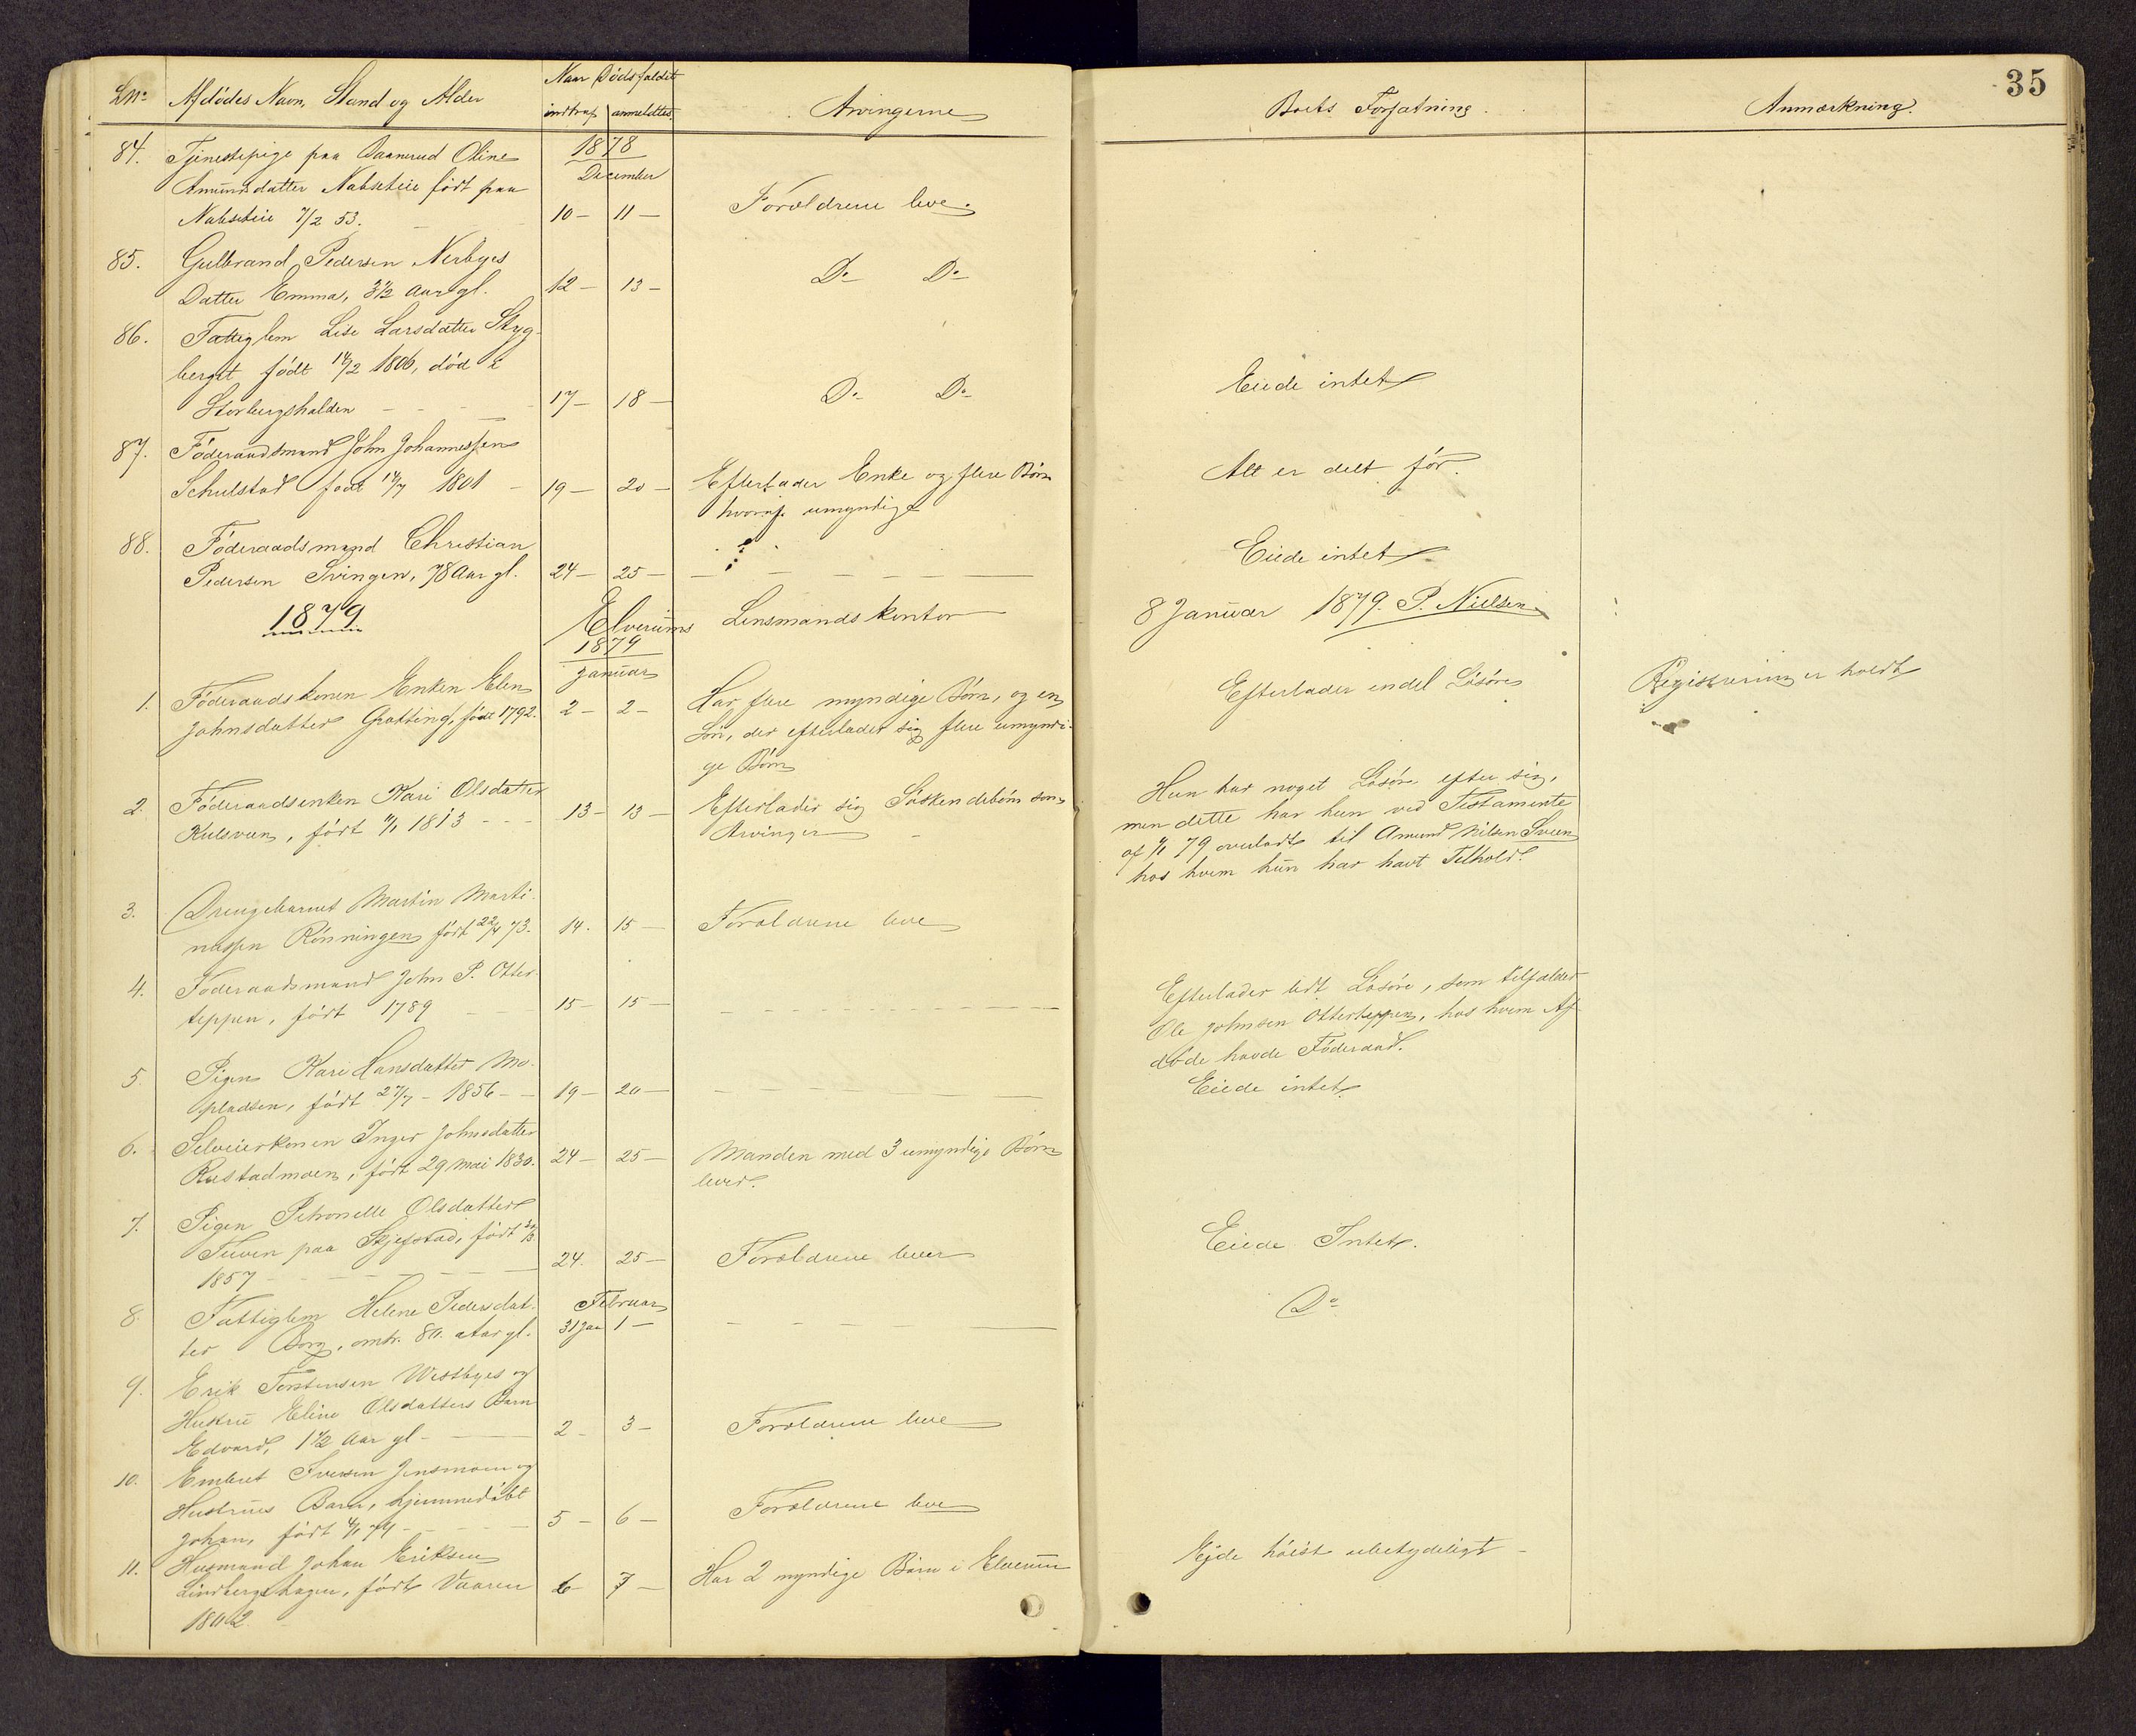 35
LNo Afdødes Navn, Stand og Alder
Naar Dødsfaldet
indtraf anmeldttes
Arvingerne
Boets Forfatning.
Anmærkning.
84. Tjenestepige paa Oline
1878
December
Amundsdatter Nabseteie født paa
Nabseteie 7/2 53. 10 – 11 – Forældrene leve.
85. Gulbrand Pedersen Nerbyes
Datter Emma, 3½ Aar gl. 12 – 13 – Do Do
86. Fattiglem Lise Larsdatter Skyg-
berget født 14/2 1806, død i
Storbergshalden 17 – 18 – Do Do Eiede intet
87. Føderaadsmand John Johannessen
Schulstad født 14/7 1801 – 19 – 20 – Efterlader Enke og flere Børn Alt er delt før.
hvoraf umyndige
88. Føderaadsmand Christian
Pedersen Svingen, 78 Aar gl. 24 – 25 – ? Eiede intet
1879
Elverums Lensmandskontor 8 Januar 1879. P. Nielsen
1879
Januar
1. Føderaadskonen Enken Elen
Johnsdatter Grøtting, født 1792. 2 – 2 – Har flere myndige Børn, og en Efterlader endel Løsøre Registrering er holdt
Søn, der efterlader sig flere umyndi-
ge Børn
2. Føderaadsenken Kari Olsdatter
Kulsveen, født 1813 – 13 – 13 – Efterlader sig Søskendebørn som
Arvinger
Hun har noget Løsøre efter sig,
men dette har hun ved Testamente
af 79 overladt til Amund Nilsen Sveen
hos hvem hun har havt Tilhold.
3. Drengebarnet Martin Marti-
nussen Rønningen født 22/4 73. 14. 15 – Forældrene leve
4. Føderaadsmand John P. Otter-
teppen, født 1789 15 – 15 –
Efterlader lidt Løsøre, som tilfalder
Ole Johnsen Otterteppen, hos hvem Af-
døde havde Føderaad.
5. Pigen Kari Hansdatter Mo-
pladsen, født 27/7 – 1856 – 19 – 20 – Eiede intet
6. Selveierkonen Inger Johnsdatter
Rustadmoen, født 29 Mai 1830. 24 – 25 – Manden med 3 umyndige Børn
lever.
7. Pigen Petronelle Olsdatter
Tuven paa Skjefstad, født
1857 24. 25 – Forældrene lever Eiede Intet.
8. Fattiglem Helene Pedersdat-
Februar
ter Borg, omtr. 80 Aar gl. 31 Jan 1 – Do
9. Erik Torstensen Westbyes og
Hustru Eline Olsdatters Barn
Edvard, 1½ Aar gl – 2 – 3 – Forældrene leve
10. Embret Iversen Jensmoen og
Hustrues Barn, hjemmedøbt
Johan, født 79 – 5 – 6 – Forældrene leve
11. Husmand Johan Eriksen
Lindbergshagen, født Vaaren 6 – 7 – Har 2 myndige Børn i Elverum Ejede høist ubetydeligt –
1802